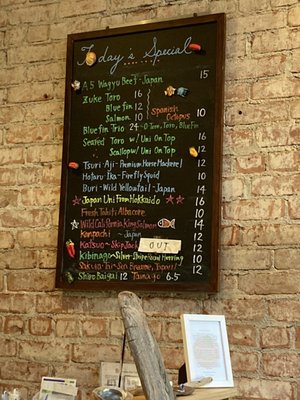 Today's Special
A5 Wagyu Beef - Japan 15
Zuke Toro 16
Bluefin 12
Salmon 10
Spanish
Octopus 10
Bluefin Trio 24 - O-Toro, Toro, Bluefin
Seared Toro w/ Uni On Top 16
Scallop w/ Uni On Top 12
Tsuri-Aji - Premium Horse Mackerel 12
Hotaru-Ika - Firefly Squid 10
Buri - Wild Yellowtail - Japan 14
Japan Uni From Hokkaido 16
Fresh Tahiti Albacore 10
Wild California King Salmon 14
Kanpachi - Japan 12
Katsuo - Skip Jack OUT 12
Kibinago - Silver-Stripe Round Herring 10
12
Shiro Baigai 12 Tamago 6.5